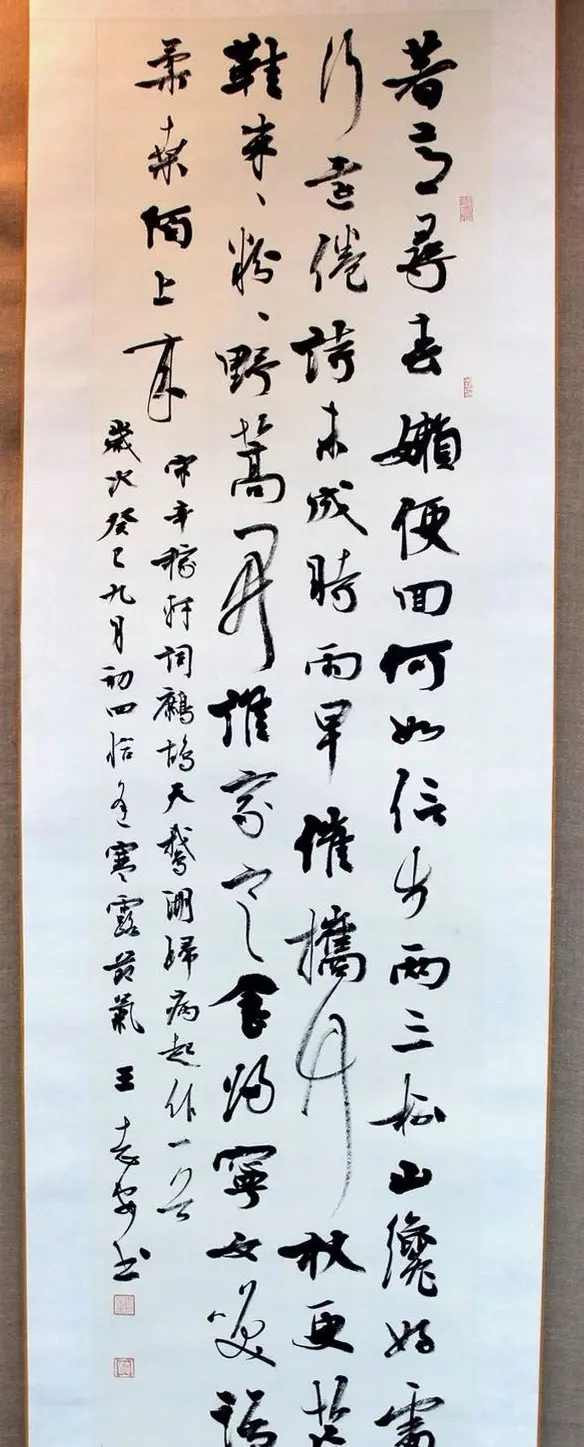 著意尋春嬾便回何如信步兩三杯山纔好處
行還倦詩未成時雨早催攜竹杖更芒
鞋朱、粉、野蒿開誰家寒食歸寧女笑語
柔桑陌上來
宋辛稼軒詞鷓鴣天鵝湖歸病起作一首
歲次癸巳九月初四恰逢寒露節氣王志安書